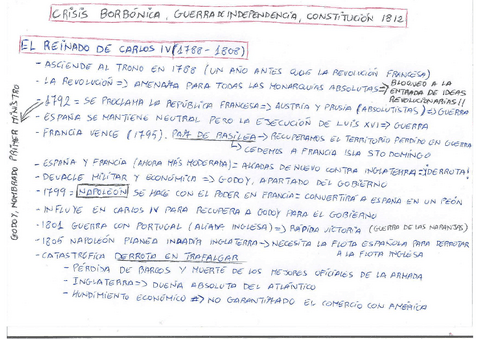 CRISIS BORBÓNICA, GUERRA DE INDEPENDENCIA, CONSTITUCIÓN 1812
EL REINADO DE CARLOS IV (1788-1808)
- ASCIENDE AL TRONO EN 1788 (UN AÑO ANTES QUE LA REVOLUCIÓN FRANCESA)
- LA REVOLUCIÓN => AMENAZA PARA TODAS LAS MONARQUÍAS ABSOLUTAS => BLOQUEO A LA ENTRADA DE IDEAS REVOLUCIONARIAS!!
- 1792 = SE PROCLAMA LA REPÚBLICA FRANCESA => AUSTRIA Y PRUSIA (ABSOLUTISTAS) => GUERRA
GODOY, NOMBRADO PRIMER MINISTRO
- ESPAÑA SE MANTIENE NEUTRAL PERO LA EJECUCIÓN DE LUIS XVI => GUERRA
- FRANCIA VENCE (1795). PAZ DE BASILEA => RECUPERAMOS EL TERRITORIO PERDIDO EN GUERRA
↳ CEDEMOS A FRANCIA ISLA STO DOMINGO
- ESPAÑA Y FRANCIA (AHORA MÁS MODERADA) = ALIADAS DE NUEVO CONTRA INGLATERRA = ¡DERROTA!
- DEVACLE MILITAR Y ECONÓMICA => GODOY, APARTADO DEL GOBIERNO
- 1799 = NAPOLEÓN SE HACE CON EL PODER EN FRANCIA = CONVERTIRÁ A ESPAÑA EN UN PEÓN
- INFLUYE EN CARLOS IV PARA RECUPERA A GODOY PARA EL GOBIERNO
- 1801 GUERRA CON PORTUGAL (ALIADA INGLESA) => RÁPIDA VICTORIA (GUERRA DE LAS NARANJAS)
- 1805 NAPOLEÓN PLANEA INVADIR INGLATERRA => NECESITA LA FLOTA ESPAÑOLA PARA DERROTAR A LA FLOTA INGLESA
- CATASTRÓFICA DERROTA EN TRAFALGAR
- PÉRDIDA DE BARCOS Y MUERTE DE LOS MEJORES OFICIALES DE LA ARMADA
- INGLATERRA => DUEÑA ABSOLUTA DEL ATLÁNTICO
- HUNDIMIENTO ECONÓMICO => NO GARANTIZADO EL COMERCIO CON AMÉRICA